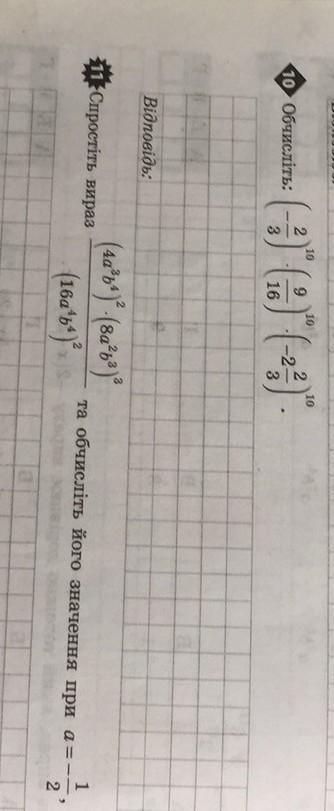 10 Обчисліть: (−2/3)^10 · (9/16)^10 · (−2 2/3)^10.
Відповідь:
11 Спростіть вираз (4a³b⁴)² · (8a²b³)³ / (16a⁴b⁴)² та обчисліть його значення при a = −1/2,